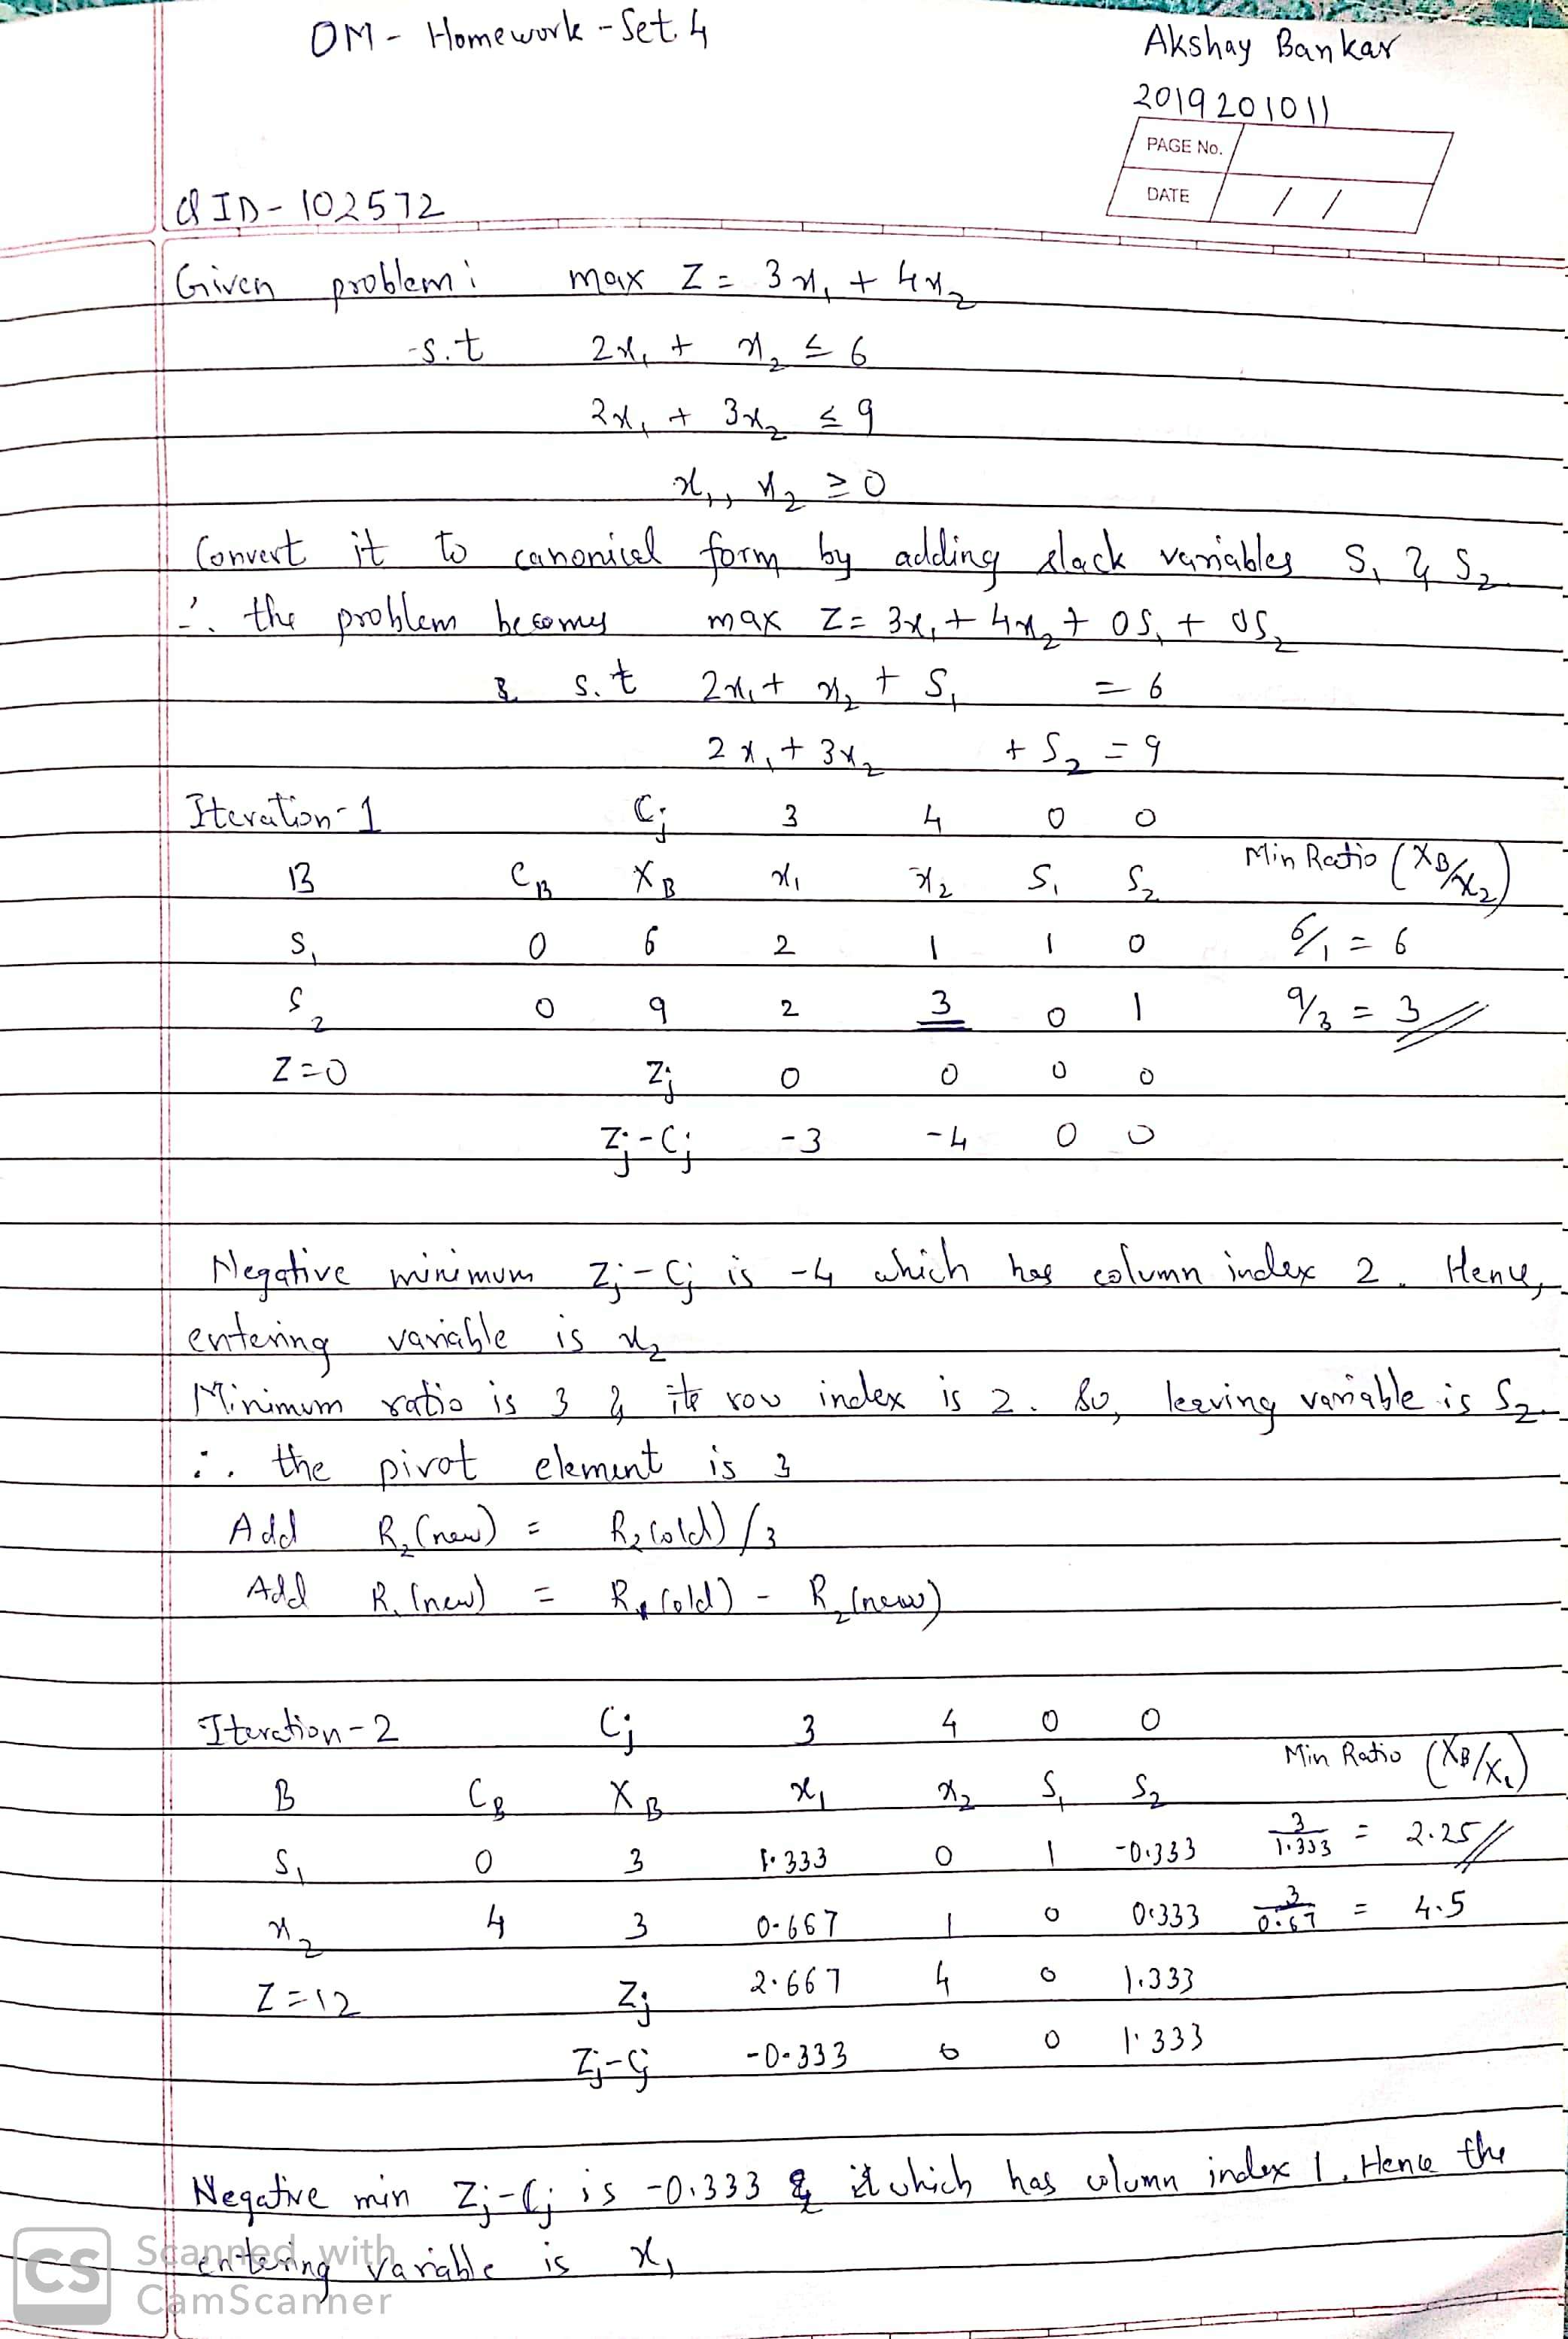 OM - Homework - Set 4
Akshay Bankar
2019201011
PAGE No.
DATE / /
QID - 102572
Given problem : max Z = 3x₁ + 4x₂
s.t 2x₁ + x₂ ≤ 6
2x₁ + 3x₂ ≤ 9
x₁, x₂ ≥ 0
Convert it to canonical form by adding slack variables S₁ & S₂
∴ the problem becomes max Z = 3x₁ + 4x₂ + 0S₁ + 0S₂
& s.t 2x₁ + x₂ + S₁ = 6
2x₁ + 3x₂ + S₂ = 9
Iteration-1 Cj 3 4 0 0
B CB XB x₁ x₂ S₁ S₂ Min Ratio (XB/x₂)
S₁ 0 6 2 1 1 0 6/1 = 6
S₂ 0 9 2 3 0 1 9/3 = 3
Z=0 Zj 0 0 0 0
Zj-Cj -3 -4 0 0
Negative minimum Zj-Cj is -4 which has column index 2. Hence,
entering variable is x₂
Minimum ratio is 3 & its row index is 2. So, leaving variable is S₂.
∴ the pivot element is 3
Add R₂(new) = R₂(old)/3
Add R₁(new) = R₁(old) - R₂(new)
Iteration-2 Cj 3 4 0 0
B CB XB x₁ x₂ S₁ S₂ Min Ratio (XB/x₁)
S₁ 0 3 1.333 0 1 -0.333 3/1.333 = 2.25
x₂ 4 3 0.667 1 0 0.333 3/0.67 = 4.5
Z=12 Zj 2.667 4 0 1.333
Zj-Cj -0.333 0 0 1.333
Negative min Zj-Cj is -0.333 & which has column index 1. Hence the
entering variable is x₁
CS Scanned with
CamScanner